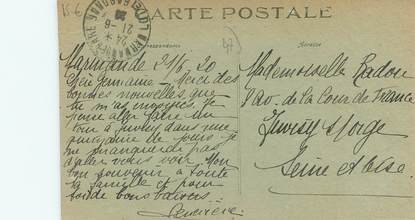 15-6
CARTE POSTALE
LOT-ET-GARONNE
24
21-6
47
Marmande 21/6.20
Chère Germaine - Merci des
bonnes nouvelles que
tu m'as envoyées. Je
pense aller faire un
tour à Juvisy dans une
quinzaine de jours je
ne manquerai pas
d'aller vous voir. Mon
bon souvenir à toute
la famille et pour
toi de bons baisers
Mademoiselle Radou
9 Av. de la Cour de France
Juvisy s/ Orge
Seine et Oise.